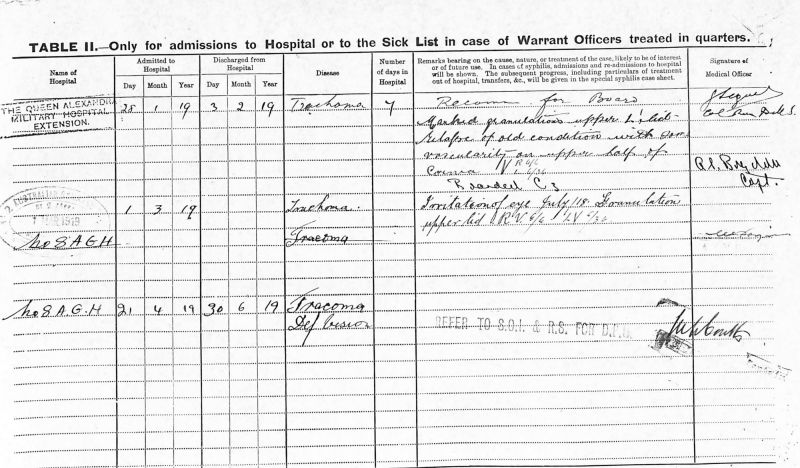 TABLE II.—Only for admissions to Hospital or to the Sick List in case of Warrant Officers treated in quarters.
Name of Hospital
Admitted to Hospital
Day Month Year
Discharged from Hospital
Day Month Year
Disease
Number of days in Hospital
Remarks bearing on the cause, nature, or treatment of the case, likely to be of interest
or of future use. In cases of syphilis, admissions and re-admissions to hospital
will be shown. The subsequent progress, including particulars of treatment
out of hospital, transfers, &c., will be given in the special syphilis case sheet.
Signature of Medical Officer
THE QUEEN ALEXANDRA
MILITARY HOSPITAL
EXTENSION.
28 1 19 3 2 19 Trachoma 7
for Board
Marked granulations upper
Relapse of old condition with
vascularity on upper half of
Cornea
Boarded
Capt.
1919
1 3 19 Trachoma.
Irritation of eye July 18. Granulation
upper lid R.V 6/6
No 8 A G H
Tracoma
No 8 A.G.H 21 4 19 30 6 19 Tracoma
Def Vision
REFER TO S.O.I. & R.S. FOR